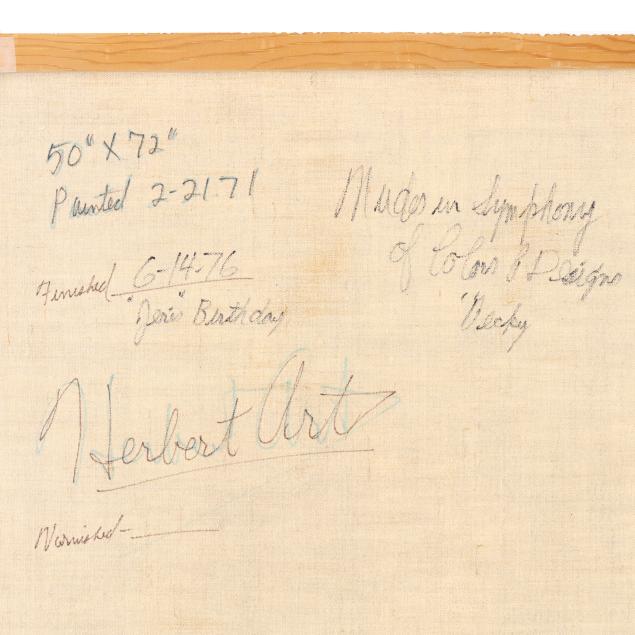 50" X 72"
Painted 2-21-71
Finished 6-14-76
"Jeris" Birthday
Nudes in Symphony
of Colors & Designs
Herbert Art
Varnished-